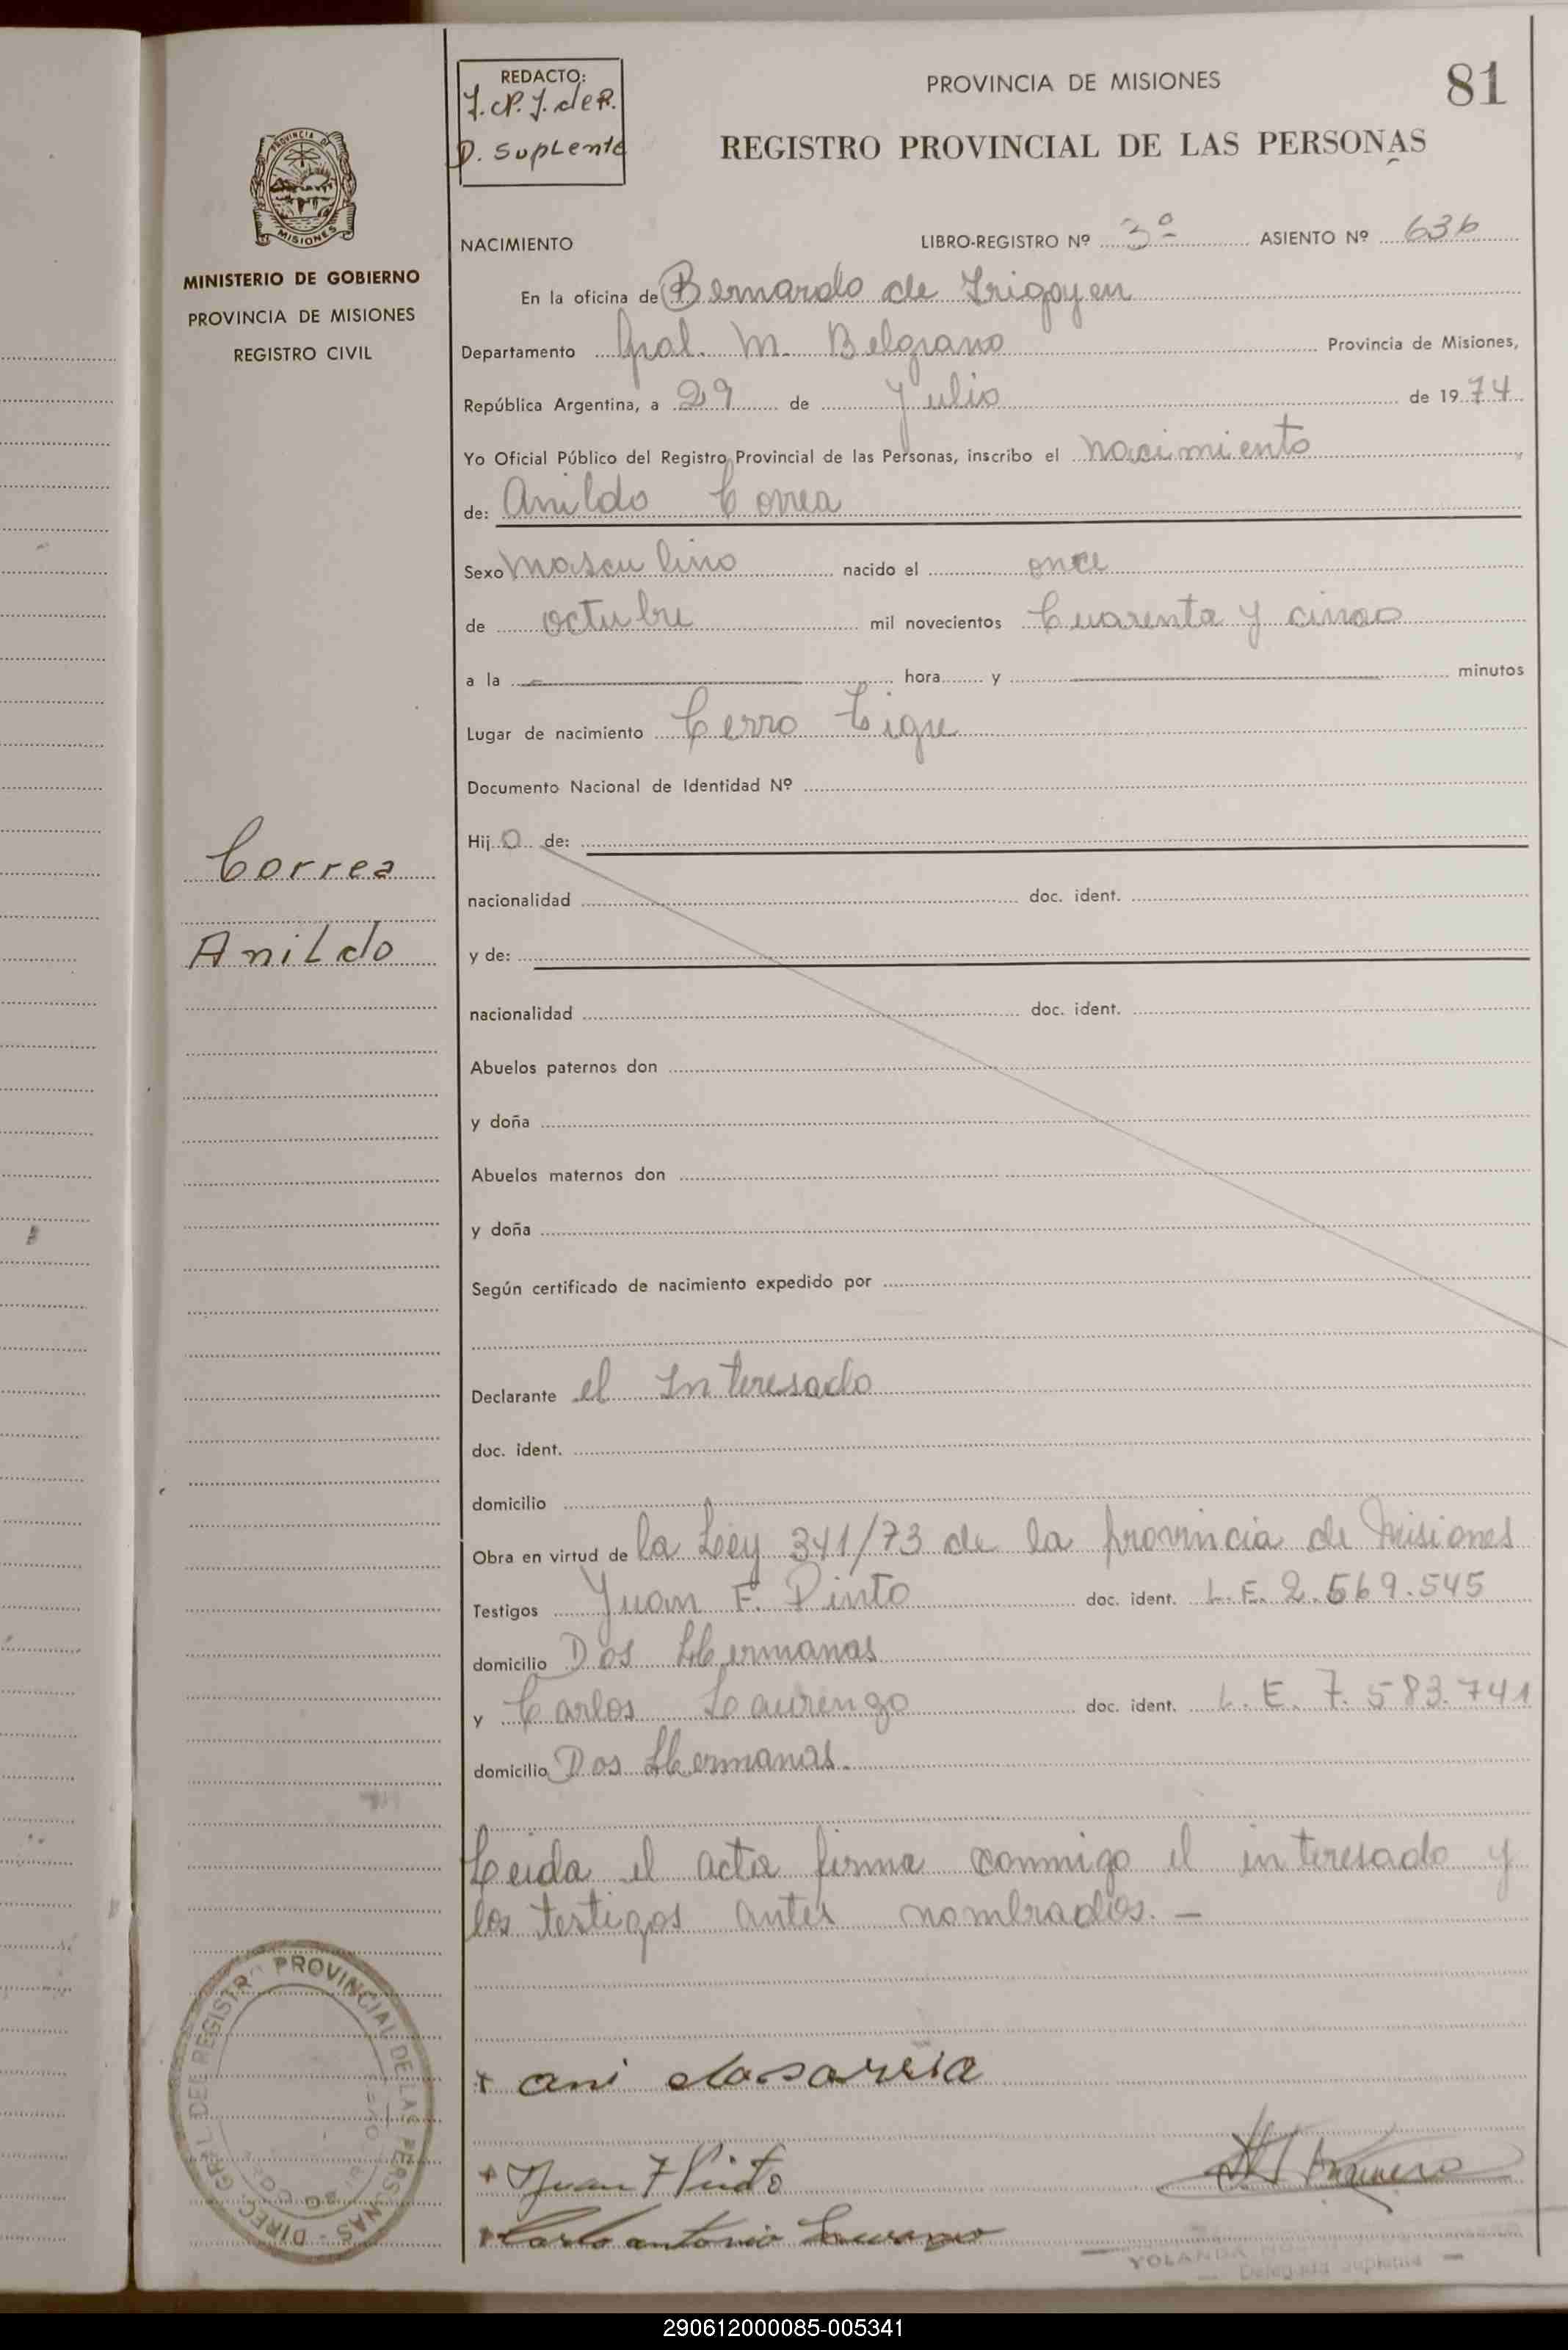 REDACTO:
D. SupLente
PROVINCIA DE MISIONES
81
REGISTRO PROVINCIAL DE LAS PERSONAS
PROVINCIA DE
MISIONES
MINISTERIO DE GOBIERNO
PROVINCIA DE MISIONES
REGISTRO CIVIL
NACIMIENTO LIBRO-REGISTRO Nº 3º ASIENTO Nº 636
En la oficina de Bernardo de Irigoyen
Departamento Gral. M. Belgrano Provincia de Misiones,
República Argentina, a 29 de Julio de 1974
Yo Oficial Público del Registro Provincial de las Personas, inscribo el nacimiento
de: Anildo Correa
Sexo Masculino nacido el once
de octubre mil novecientos Cuarenta y cinco
a la hora y minutos
Lugar de nacimiento Cerro Tigre
Documento Nacional de Identidad Nº
Hijo de:
nacionalidad doc. ident.
y de:
nacionalidad doc. ident.
Abuelos paternos don
y doña
Abuelos maternos don
y doña
Según certificado de nacimiento expedido por
Declarante el Interesado
doc. ident.
domicilio
Obra en virtud de la Ley 341/73 de la provincia de Misiones
Testigos Juan F. Pinto doc. ident. L.E. 2.569.545
domicilio Dos Hermanas
y Carlos Laurengo doc. ident. L.E. 7.583.741
domicilio Dos Hermanas.
Leida el acta firma conmigo el interesado y
los testigos antes nombrados. —
Correa
AniLdo
DIREC. GRAL. DEL REGISTRO PROVINCIAL DE LAS PERSONAS
Juan F Pinto
Carlo antonio
YOLANDA
Delegada Suplente
290612000085-005341